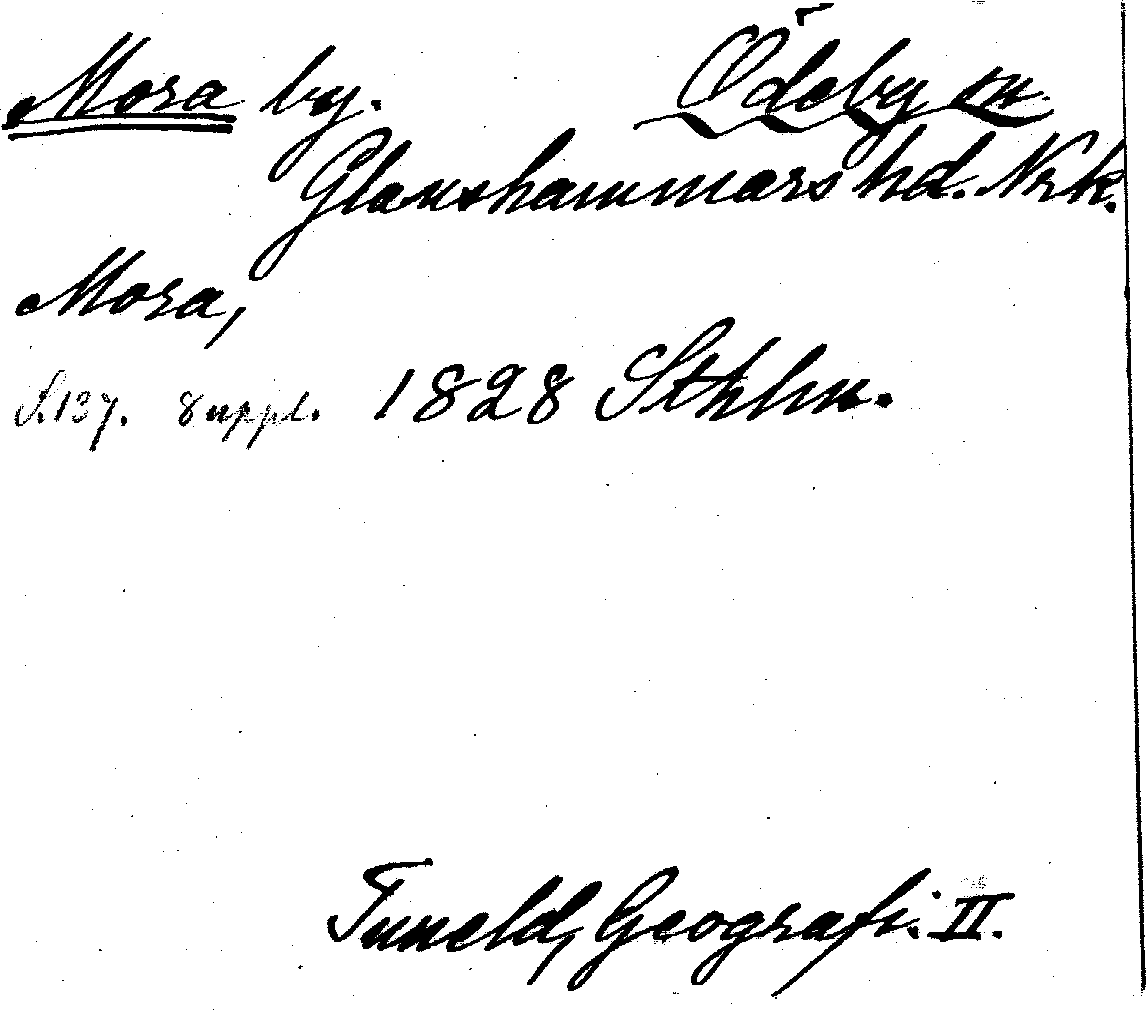 Mora by. Ödeby sn.
Glanshammars hd. Nrk.
Mora,
S.137. Suppl. 1828 Sthlm.
Tuneld, Geografi. II.